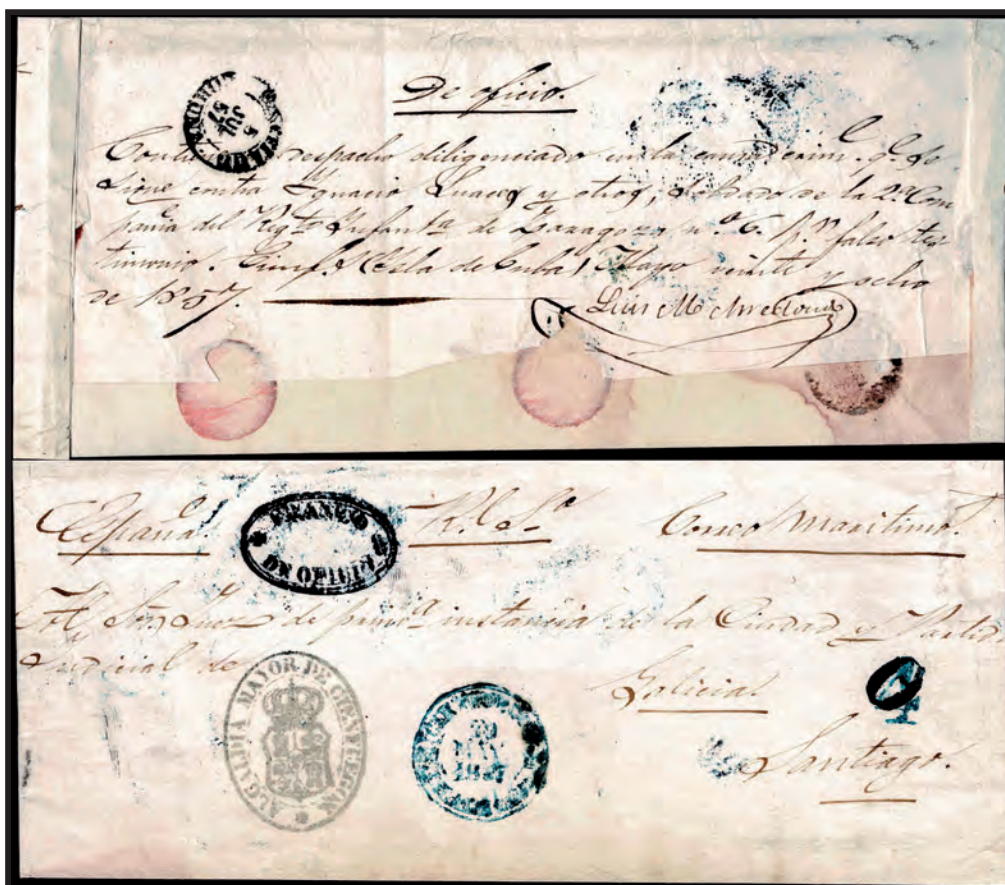 De oficio.
5
JUL
57
despacho diligenciado en la causa crim.l q.e se
sigue contra Ygnacio Luaces y otros, soldados de la 2.a Com
pañia del Reg.to Infant.a de Zaragoza n.o 6. p.r falso tes
timonio. Cienf.s (Isla de Cuba) Mayo veinte y ocho
de 1857.
Luis M
España.
R.l S.o
Correo Maritimo.
FRANCO
DE OFICIO.
Sor. Juez de prim.a instancia de la Ciudad y Partido
Judicial de
Galicia.
Santiago.
ALCALDIA MAYOR DE CIENFUEGOS.
MAY